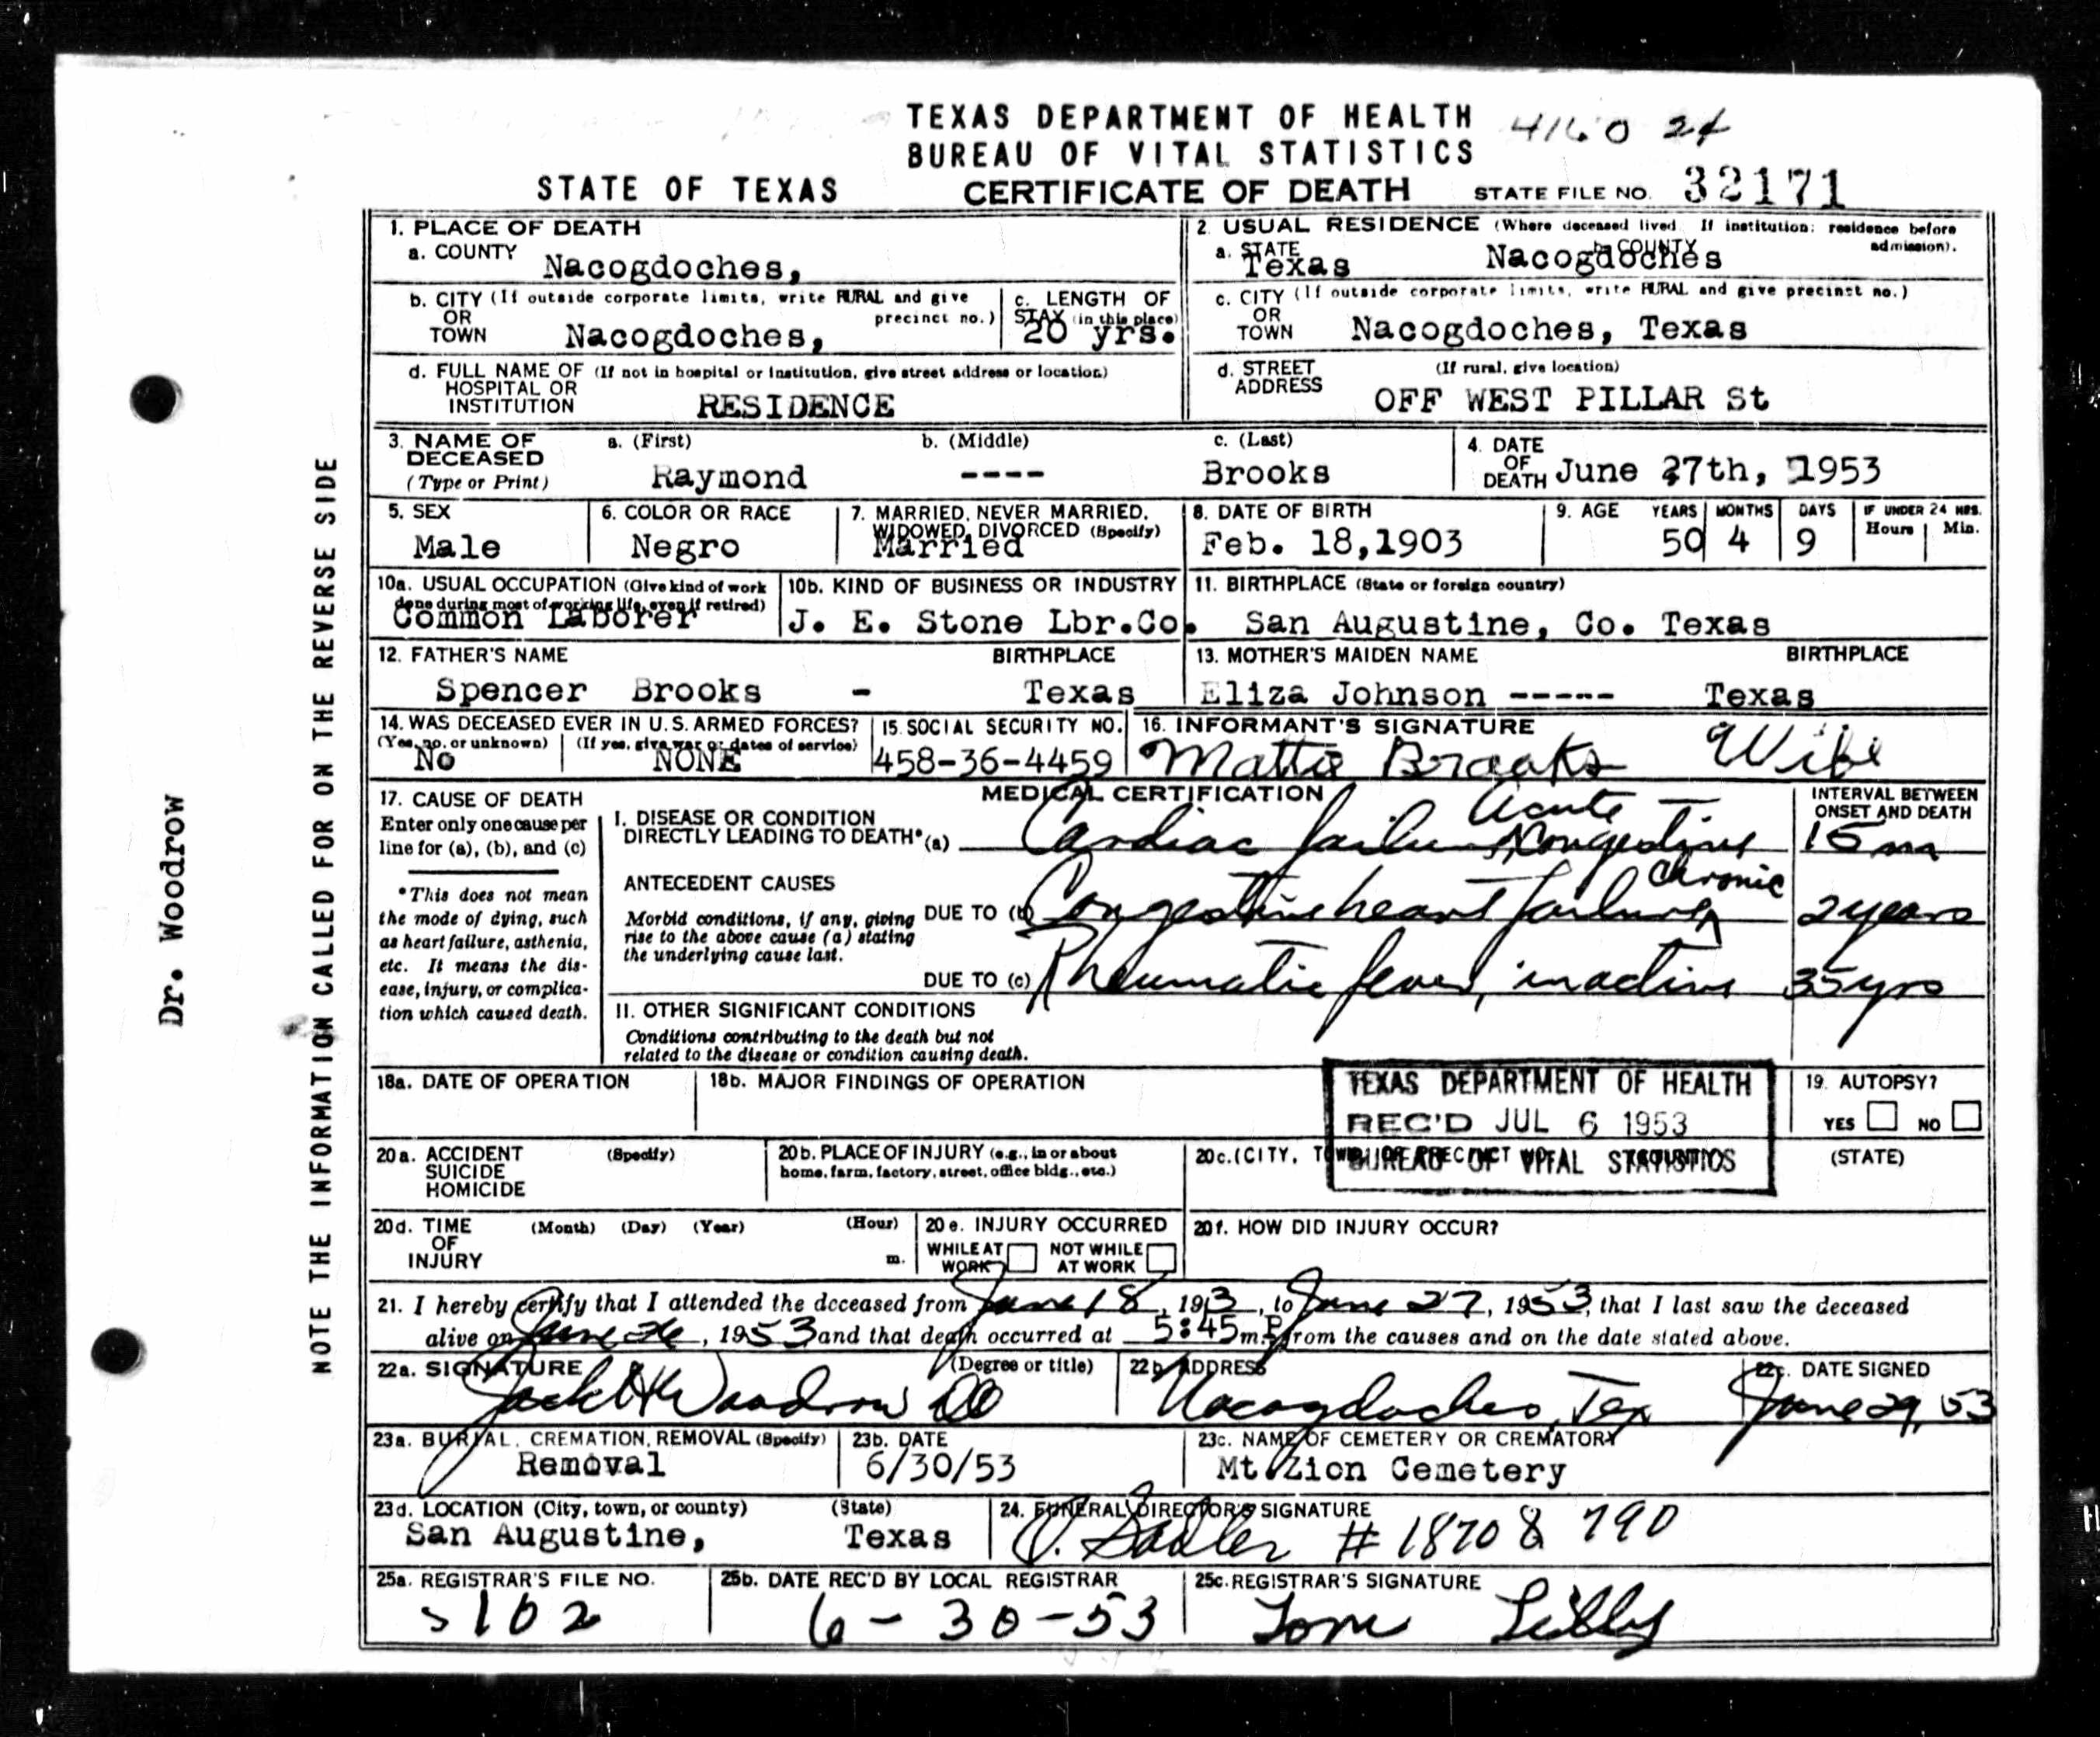 TEXAS DEPARTMENT OF HEALTH
BUREAU OF VITAL STATISTICS
4160 24
STATE OF TEXAS CERTIFICATE OF DEATH STATE FILE NO. 32171
1. PLACE OF DEATH
a. COUNTY Nacogdoches,
2. USUAL RESIDENCE (Where deceased lived. If institution: residence before admission).
a. STATE Texas b. COUNTY Nacogdoches
b. CITY (If outside corporate limits, write RURAL and give precinct no.)
OR
TOWN Nacogdoches,
c. LENGTH OF
STAY (in this place)
20 yrs.
c. CITY (If outside corporate limits, write RURAL and give precinct no.)
OR
TOWN Nacogdoches, Texas
d. FULL NAME OF (If not in hospital or institution, give street address or location)
HOSPITAL OR
INSTITUTION RESIDENCE
d. STREET (If rural, give location)
ADDRESS OFF WEST PILLAR St
3. NAME OF a. (First) b. (Middle) c. (Last)
DECEASED
(Type or Print) Raymond ---- Brooks
4. DATE
OF
DEATH June 27th, 1953
5. SEX
Male
6. COLOR OR RACE
Negro
7. MARRIED, NEVER MARRIED,
WIDOWED, DIVORCED (Specify)
Married
8. DATE OF BIRTH
Feb. 18,1903
9. AGE YEARS MONTHS DAYS IF UNDER 24 HRS.
Hours Min.
50 4 9
10a. USUAL OCCUPATION (Give kind of work
done during most of working life, even if retired)
Common Laborer
10b. KIND OF BUSINESS OR INDUSTRY
J. E. Stone Lbr.Co.
11. BIRTHPLACE (State or foreign country)
San Augustine, Co. Texas
12. FATHER'S NAME BIRTHPLACE
Spencer Brooks - Texas
13. MOTHER'S MAIDEN NAME BIRTHPLACE
Eliza Johnson ----- Texas
14. WAS DECEASED EVER IN U.S. ARMED FORCES?
(Yes, no, or unknown) (If yes, give war or dates of service)
No NONE
15. SOCIAL SECURITY NO.
458-36-4459
16. INFORMANT'S SIGNATURE
Mattie Brooks Wife
MEDICAL CERTIFICATION
17. CAUSE OF DEATH
Enter only one cause per
line for (a), (b), and (c)
*This does not mean
the mode of dying, such
as heart failure, asthenia,
etc. It means the dis-
ease, injury, or complica-
tion which caused death.
I. DISEASE OR CONDITION
DIRECTLY LEADING TO DEATH* (a) Cardiac failure, Acute Congestive
INTERVAL BETWEEN
ONSET AND DEATH
15 m
ANTECEDENT CAUSES
Morbid conditions, if any, giving
rise to the above cause (a) stating
the underlying cause last.
DUE TO (b) Congestive heart failure Chronic 2 years
DUE TO (c) Rheumatic fever, inactive 35 yrs
II. OTHER SIGNIFICANT CONDITIONS
Conditions contributing to the death but not
related to the disease or condition causing death.
18a. DATE OF OPERATION
18b. MAJOR FINDINGS OF OPERATION
TEXAS DEPARTMENT OF HEALTH
REC'D JUL 6 1953
BUREAU OF VITAL STATISTICS
19. AUTOPSY?
YES NO
20a. ACCIDENT (Specify)
SUICIDE
HOMICIDE
20b. PLACE OF INJURY (e.g., in or about
home, farm, factory, street, office bldg., etc.)
20c. (CITY, TOWN, OR PRECINCT (STATE)
20d. TIME (Month) (Day) (Year) (Hour)
OF
INJURY m.
20e. INJURY OCCURRED
WHILE AT WORK NOT WHILE AT WORK
20f. HOW DID INJURY OCCUR?
21. I hereby certify that I attended the deceased from June 18, 1953, to June 27, 1953, that I last saw the deceased
alive on June 26, 1953 and that death occurred at 5:45 m.P from the causes and on the date stated above.
22a. SIGNATURE (Degree or title)
Jack H Woodrow DO
22b. ADDRESS
Nacogdoches, Tex
22c. DATE SIGNED
June 29, 53
23a. BURIAL, CREMATION, REMOVAL (Specify)
Removal
23b. DATE
6/30/53
23c. NAME OF CEMETERY OR CREMATORY
Mt. Zion Cemetery
23d. LOCATION (City, town, or county) (State)
San Augustine, Texas
24. FUNERAL DIRECTOR'S SIGNATURE
O. Sadler # 1870 & 790
25a. REGISTRAR'S FILE NO.
102
25b. DATE REC'D BY LOCAL REGISTRAR
6-30-53
25c. REGISTRAR'S SIGNATURE
Tom
NOTE THE INFORMATION CALLED FOR ON THE REVERSE SIDE
Dr. Woodrow